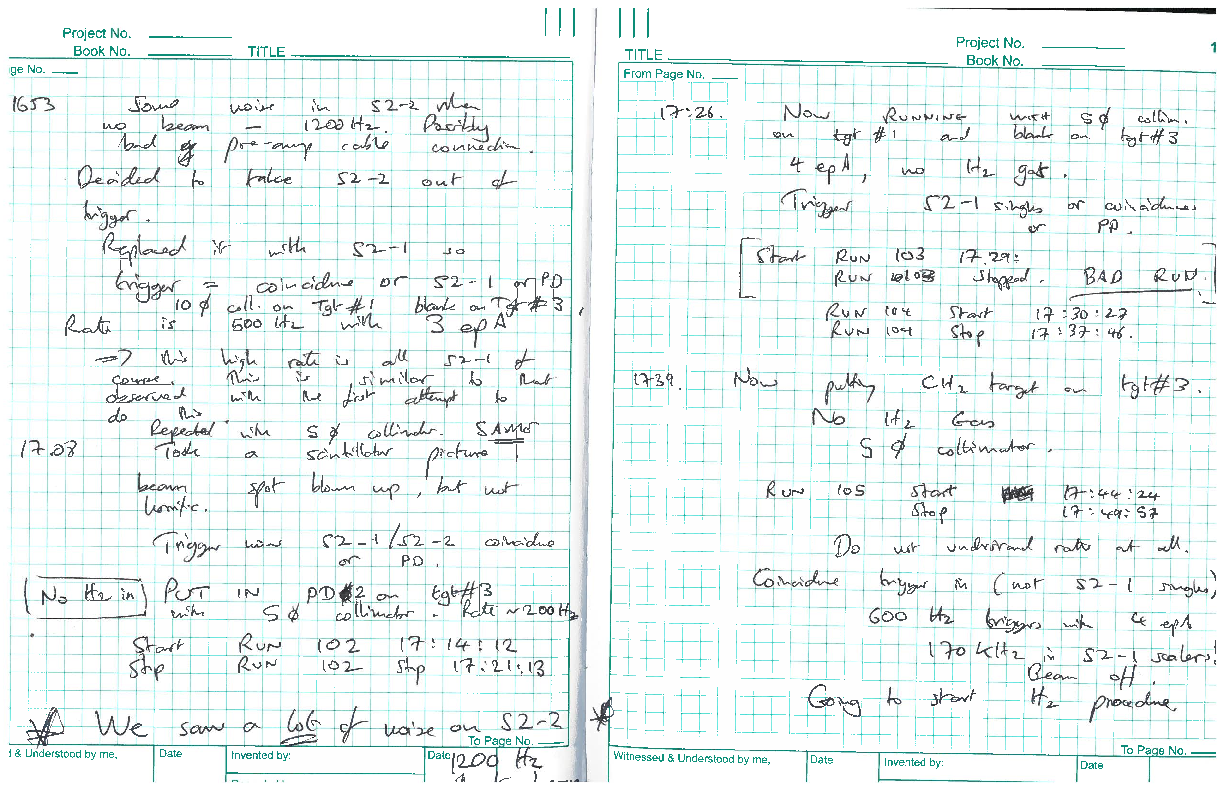 Project No.
Book No.
TITLE
ge No.
1653 Some noise in S2-2 when
no beam - 1200 Hz. Possibly
bad pre-amp cable connection.
Decided to take S2-2 out of
trigger.
Replaced it with S2-1 so
trigger = coincidence or S2-1 or PD
10 ϕ coll. on Tgt #1 blank on Tgt #3,
Rate is 600 Hz with 3 epA
=> This high rate is all S2-1 of
course. This is similar to that
observed with the first attempt to
do this
Repeated with 5 ϕ collimator. SAME
17.08 Took a scintillator picture!
beam spot blown up, but not
horrific.
Trigger now S2-1/S2-2 coincidence
or PD.
No H2 in PUT IN PD 2 on tgt #3
with 5 ϕ collimator. Rate ~ 200 Hz
Start RUN 102 17:14:12
Stop RUN 102 Stop 17:21:13
We saw a lot of noise on S2-2
To Page No.
d & Understood by me,
Date
Invented by:
Date
1200 Hz
TITLE
Project No.
Book No.
1
From Page No.
17:26. Now RUNNING WITH 5 ϕ collim.
on tgt #1 and blank on tgt #3
4 epA, no H2 gas.
Trigger S2-1 singles or coincidences
or PD.
Start RUN 103 17.29:
RUN 103 Stopped. BAD RUN.
RUN 104 Start 17:30:27
RUN 104 Stop 17:37:46.
1739. Now putting CH2 target on tgt #3.
No H2 Gas
5 ϕ collimator.
RUN 105 Start 17:44:24
Stop 17:49:57
Do not understand rates at all.
Coincidence trigger in (not S2-1 singles)
600 Hz triggers with 4 epA
170 KHz in S2-1 scalers!
Beam off.
Going to start H2 procedure
To Page No.
Witnessed & Understood by me,
Date
Invented by:
Date